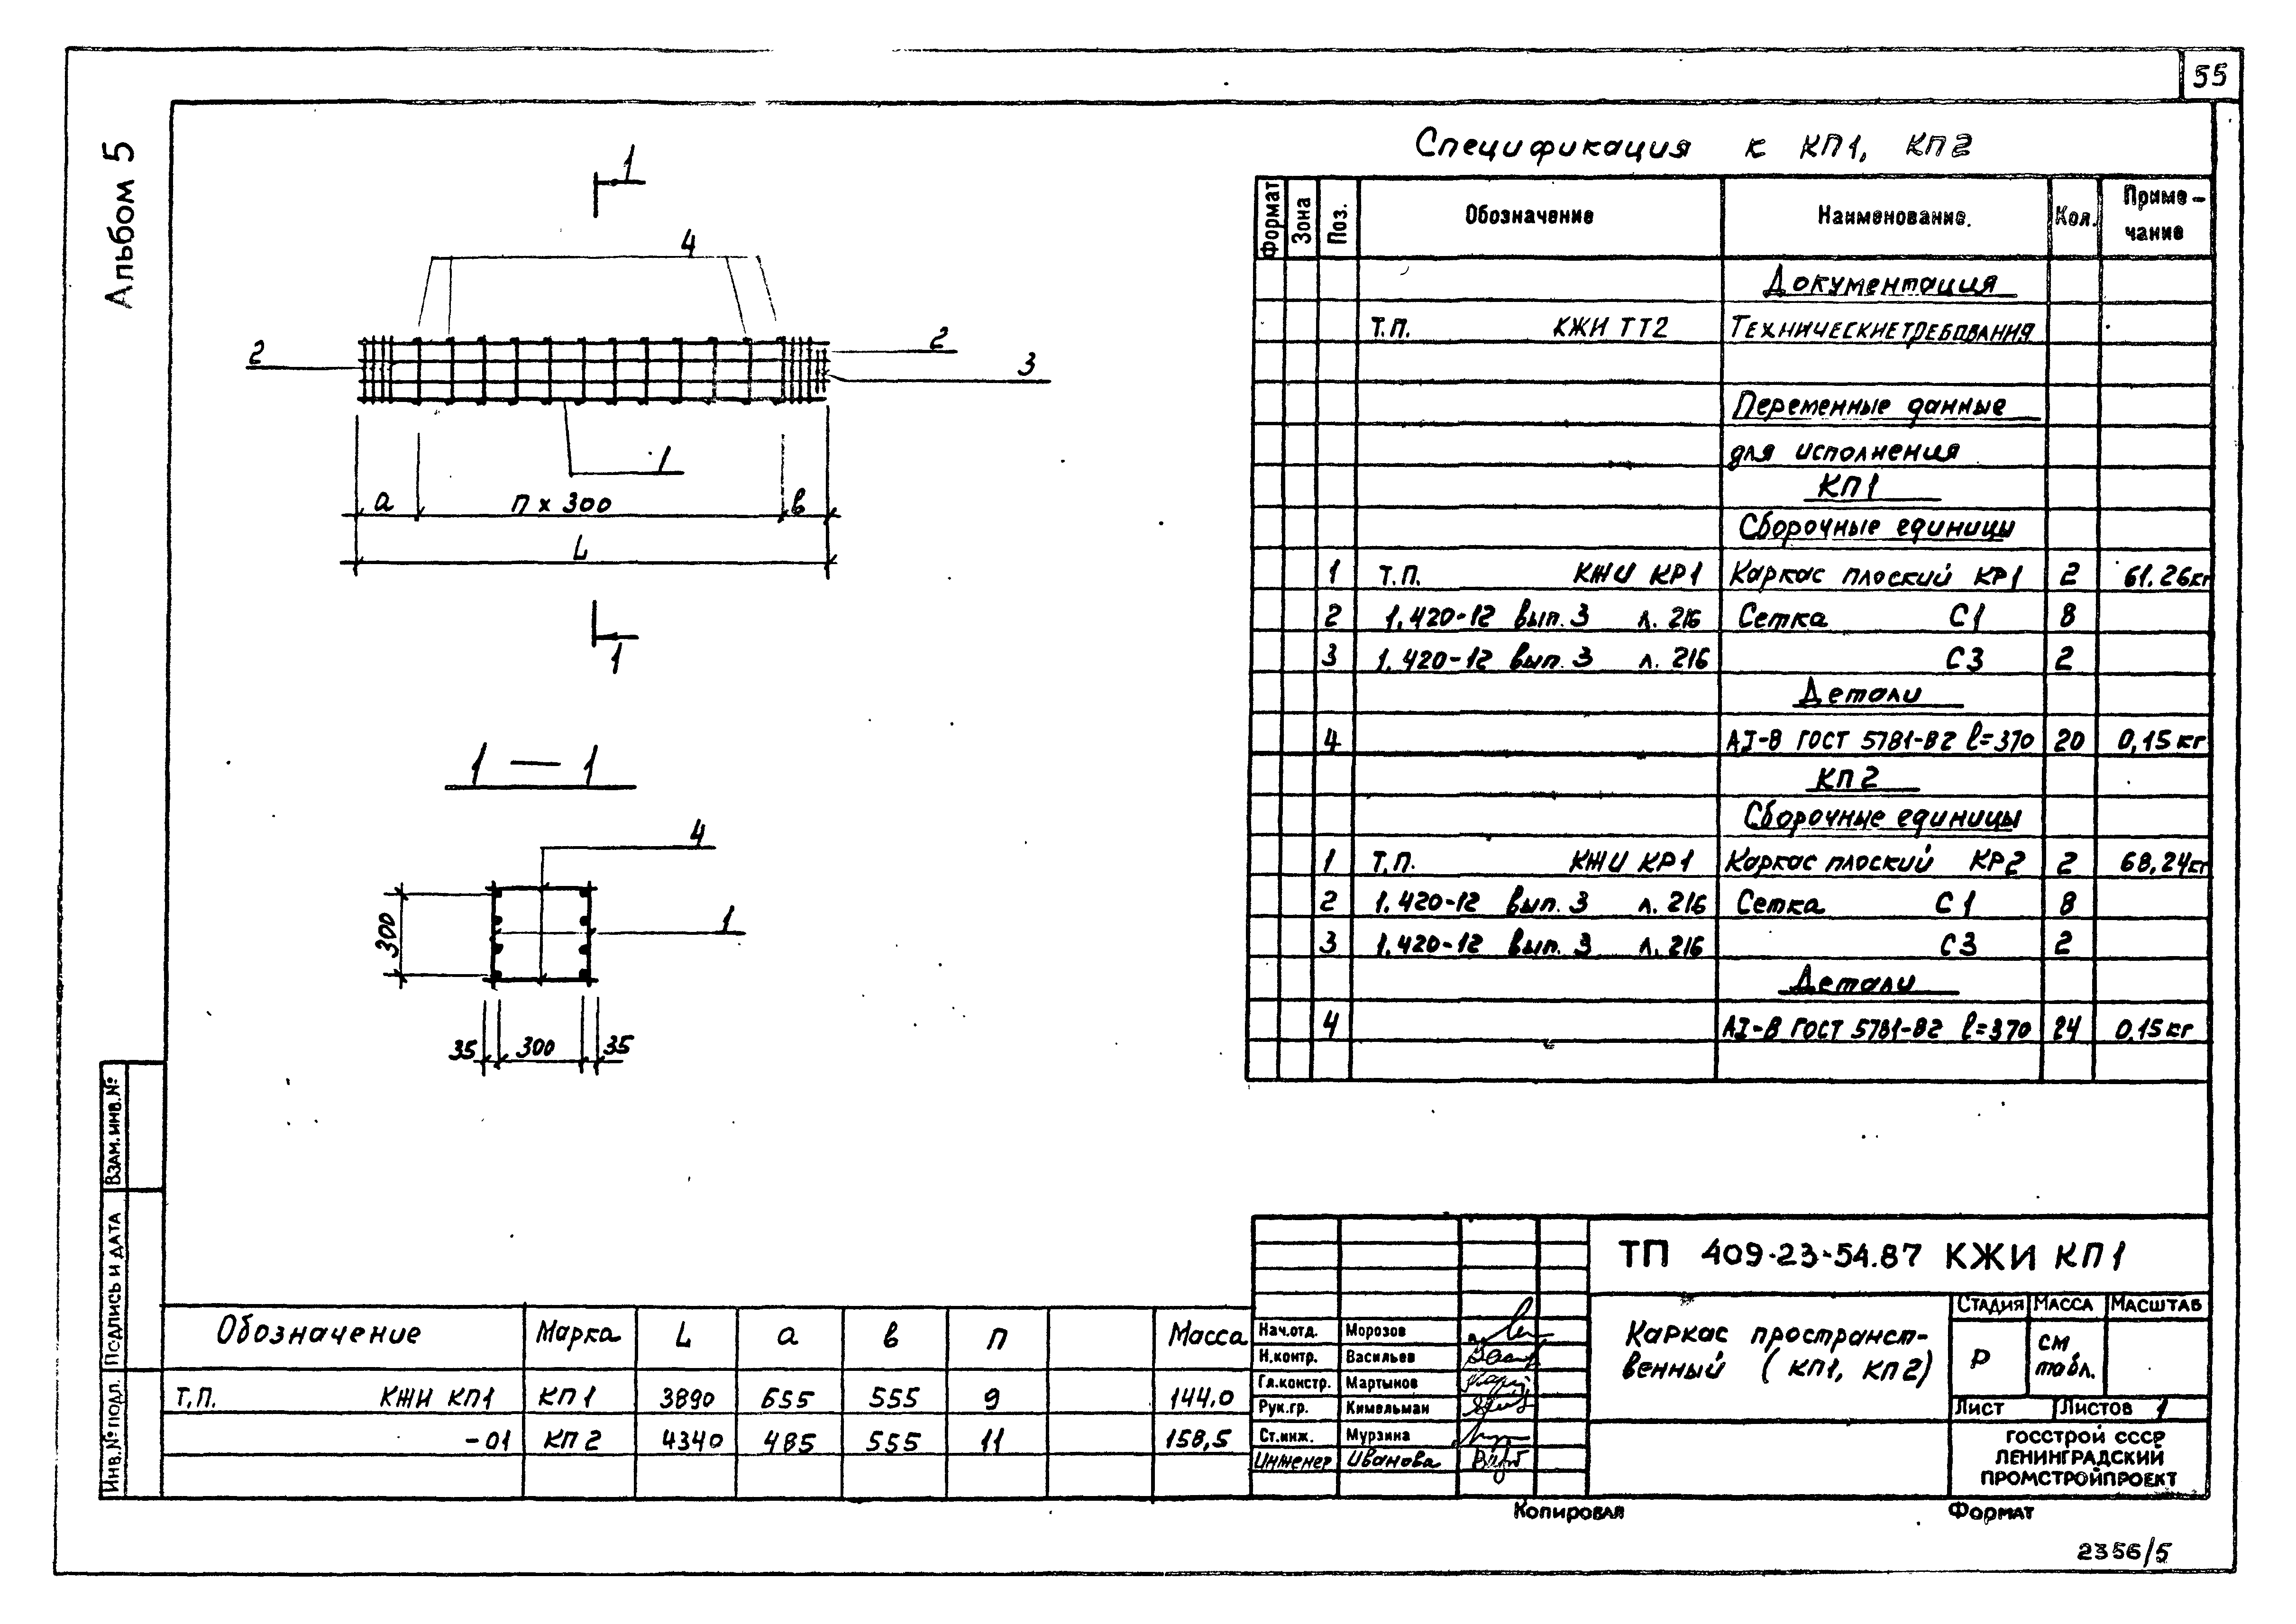 55
Альбом 5
1
4
2
2
3
1
а
п х 300
в
L
1
1 — 1
4
300
1
35
300
35
Спецификация к КП1, КП2
Формат
Зона
Поз.
Обозначение
Наименование.
Кол.
Приме-
чание
Документация
Т.П. КЖИ ТТ2 Технические требования
Переменные данные
для исполнения
КП1
Сборочные единицы
1 Т.П. КЖИ КР1 Каркас плоский КР1 2 61.26кг
2 1.420-12 вып. 3 л. 216 Сетка С1 8
3 1.420-12 вып. 3 л. 216 С3 2
Детали
4 АI-8 ГОСТ 5781-82 l=370 20 0,15кг
КП2
Сборочные единицы
1 Т.П. КЖИ КР1 Каркас плоский КР2 2 68,24кг
2 1.420-12 вып. 3 л. 216 Сетка С1 8
3 1.420-12 вып. 3 л. 216 С3 2
Детали
4 АI-8 ГОСТ 5781-82 l=370 24 0,15кг
Взам.инв.№
Подпись и дата
Инв.№ подл.
Обозначение Марка L а в п Масса
Т.П. КЖИ КП1 КП1 3890 655 555 9 144,0
-01 КП2 4340 485 555 11 158,5
Нач.отд. Морозов
Н.контр. Васильев
Гл.констр. Мартынов
Рук.гр. Кимельман
Ст.инж. Мурзина
Инженер Иванова
ТП 409-23-54.87 КЖИ КП1
Каркас пространст-
венный (КП1, КП2)
Стадия Масса Масштаб
Р
см
табл.
Лист Листов 1
ГОССТРОЙ СССР
ЛЕНИНГРАДСКИЙ
ПРОМСТРОЙПРОЕКТ
Копировал
Формат
2356/5